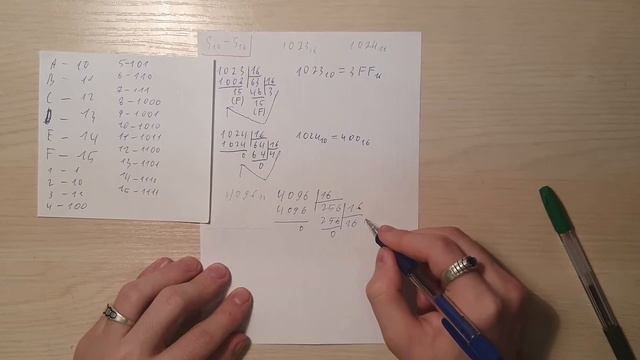 A - 10
B - 11
C - 12
D - 13
E - 14
F - 15
1 - 1
2 - 10
3 - 11
4 - 100
5-101
6-110
7-111
8-1000
9-1001
10-1010
11-1011
12-1100
13-1101
14-1110
15-1111
1023₁₀
1024₁₀
1023 16
1008 63 16
15 48 3
(F) 15
(F)
1023₁₀ = 3FF₁₆
1024 16
1024 64 16
0 64 4
0
1024₁₀ = 400₁₆
4096₁₀
4096 16
4096 256 16
0 256 16
0